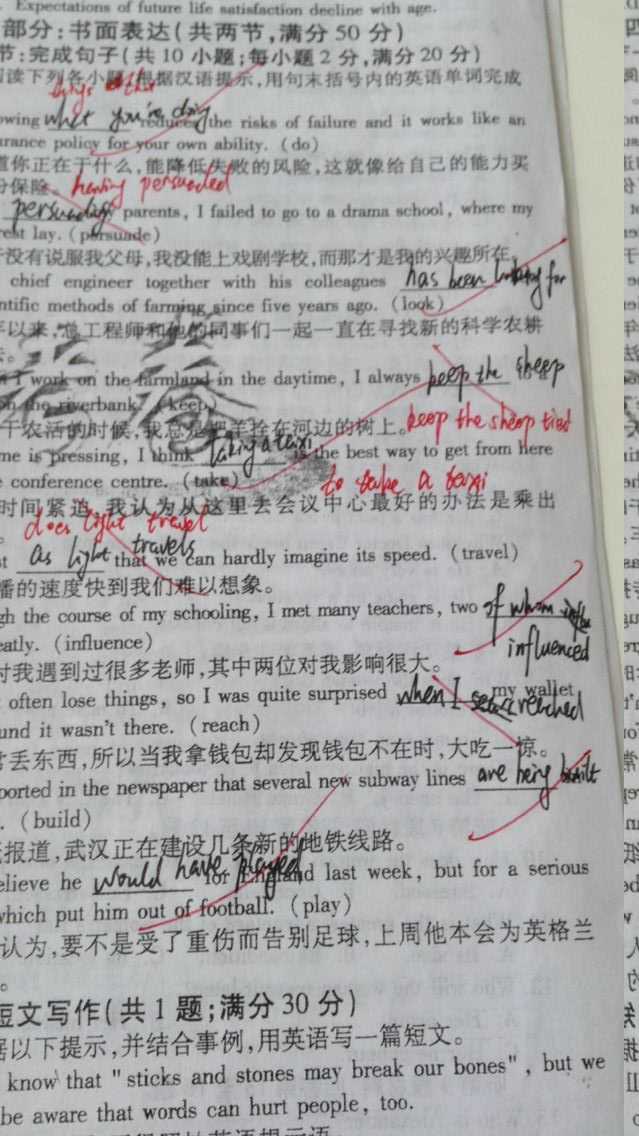 Expectations of future life satisfaction decline with age.
部分:书面表达(共两节,满分 50 分)
节:完成句子(共 10 小题;每小题 2 分,满分 20 分)
读下列各小题,根据汉语提示,用句末括号内的英语单词完成
things that
owing what you're doing reduces the risks of failure and it works like an
urance policy for your own ability. (do)
道你正在干什么,能降低失败的风险,这就像给自己的能力买
份保险。 having persuaded
persuading my parents, I failed to go to a drama school, where my
rest lay. (persuade)
于没有说服我父母,我没能上戏剧学校,而那才是我的兴趣所在。
chief engineer together with his colleagues has been looking for
ntific methods of farming since five years ago. (look)
年以来,总工程师和他的同事们一起一直在寻找新的科学农耕
I work on the farmland in the daytime, I always keep the sheep to a
on the riverbank. (keep)
干农活的时候,我总是把羊拴在河边的树上。 keep the sheep tied
me is pressing, I think taking a taxi is the best way to get from here
conference centre. (take) to take a taxi
时间紧迫,我认为从这里去会议中心最好的办法是乘出
does light travel
as light travels that we can hardly imagine its speed. (travel)
播的速度快到我们难以想象。
gh the course of my schooling, I met many teachers, two of whom
eatly. (influence) influenced
时我遇到过很多老师,其中两位对我影响很大。
often lose things, so I was quite surprised when I reached my wallet
und it wasn't there. (reach)
常丢东西,所以当我拿钱包却发现钱包不在时,大吃一惊。
ported in the newspaper that several new subway lines are being built
. (build)
报道,武汉正在建设几条新的地铁线路。
elieve he would have played for England last week, but for a serious
which put him out of football. (play)
认为,要不是受了重伤而告别足球,上周他本会为英格兰
短文写作(共 1 题;满分 30 分)
据以下提示,并结合事例,用英语写一篇短文。
know that "sticks and stones may break our bones", but we
be aware that words can hurt people, too.